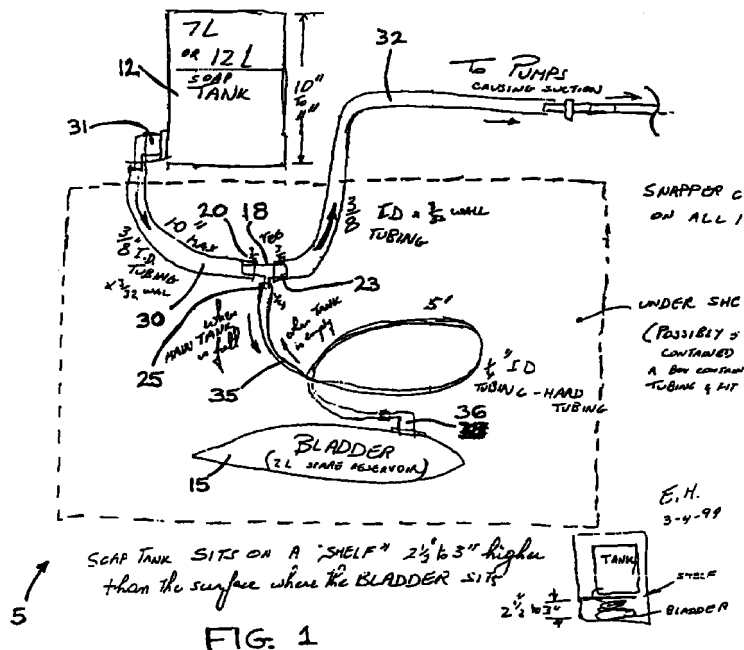 7L
OR 12L
SOAP
TANK
12
31
10"
TO
32
TO PUMPS
CAUSING SUCTION
SNAPPER C
ON ALL
20
18
TEE
10"
MAX
3/8" I.D.
TUBING
x 3/32 WAL
3/8 ID x 3/32 WALL
TUBING
30
23
25
when
MAIN TANK
is full
when TANK
is empty
35
5'
1/4" ID
TUBING - HARD
TUBING
UNDER SHE
(POSSIBLY
CONTAINED
A BOX CONTAIN
TUBING & FIT
36
BLADDER
(2L SPARE RESERVOIR)
15
E.H.
3-4-99
SOAP TANK SITS ON A "SHELF" 2 1/2" to 3" higher
than the surface where the BLADDER SITS
TANK
SHELF
2 1/2" to 3"
BLADDER
5
FIG. 1